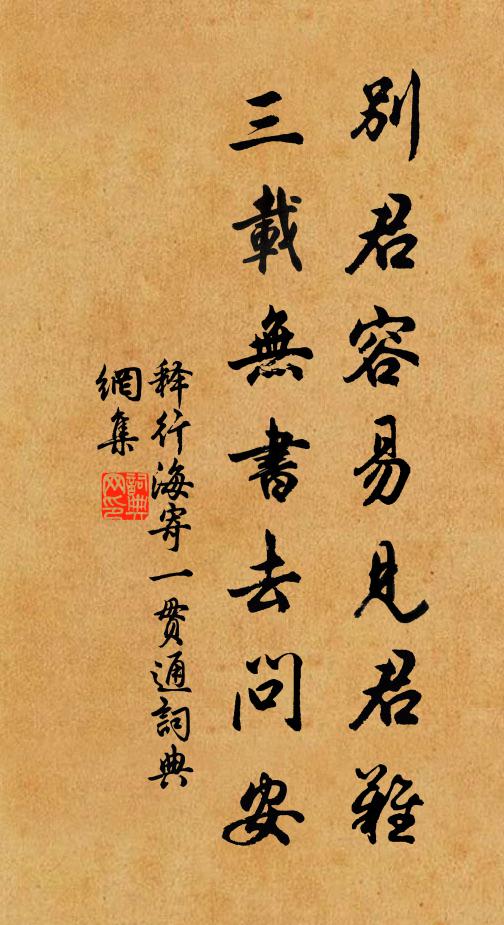 別君容易見君難
三載無書去問安
释行海寄一貫通詞典
網集
詞典
网印